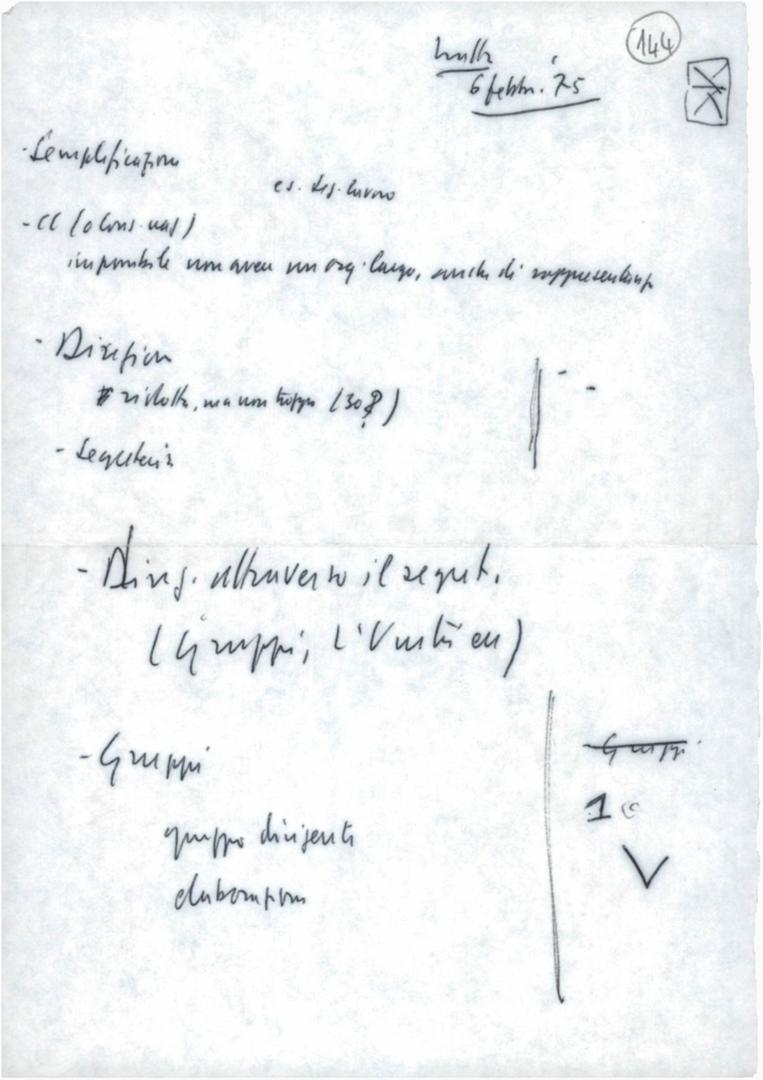 144
6 febbr. 75
- Semplificazioni
es. Seg. lavoro
- CC (o Cons. naz)
impossibile non avere un org. largo, anche di rappresentanza
- Direzione
ridotta, ma non troppo (30?)
- Segreteria
- Direz. attraverso il segret.
(Gruppi, l'Unità ecc)
- Gruppi
- Gruppi
gruppo dirigente
1
elaborazione
V